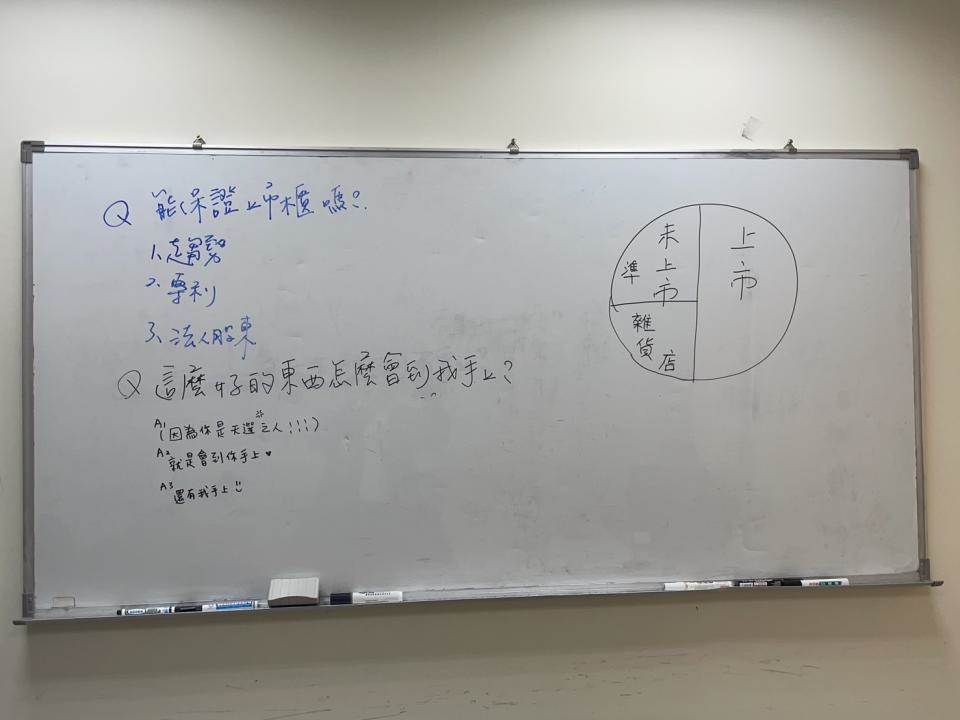 Q 能保證上市櫃嗎?
1. 趨勢
2. 專利
3. 法人股東
Q 這麼好的東西怎麼會到我手上?
A1 (因為你是天選之人!!!)
A2 就是會到你手上♥
A3 還有我手上
未上市
準
雜貨店
上市